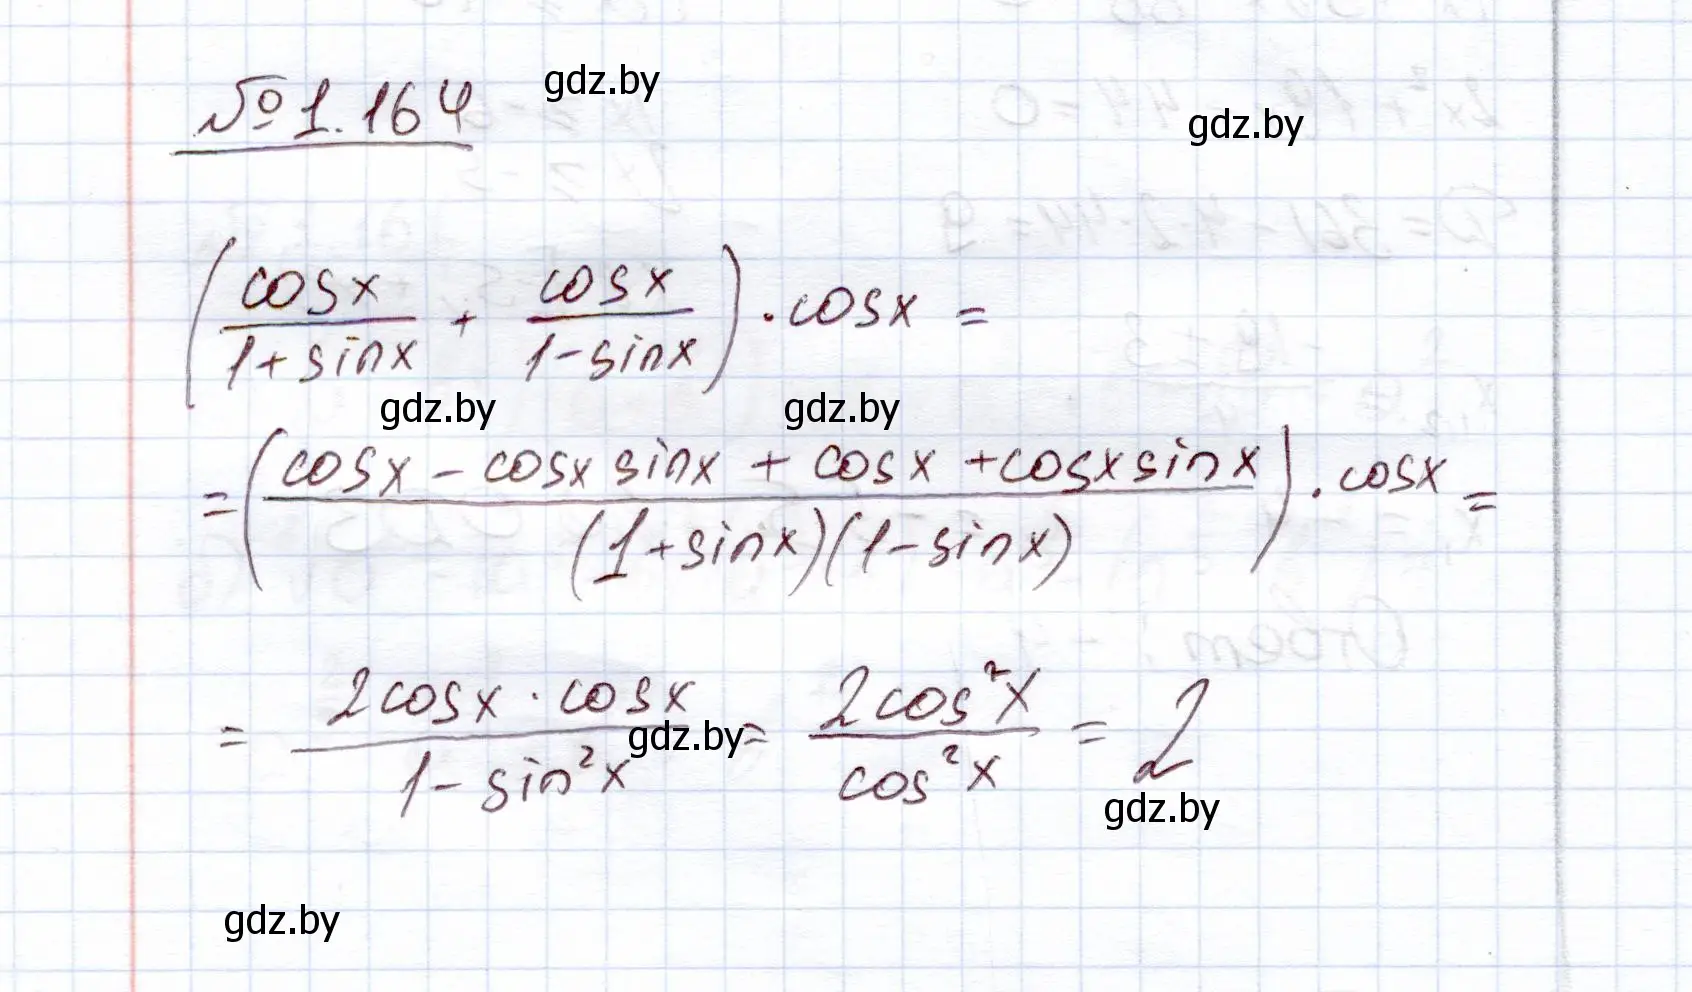 № 1.164
gdz.by
gdz.by
(cosx/(1+sinx) + cosx/(1-sinx)) · cosx =
gdz.by gdz.by
= ((cosx - cosx sinx + cosx + cosx sinx)/((1+sinx)(1-sinx))) · cosx =
= (2cosx · cosx)/(1-sin²x) = 2cos²x/cos²x = 2
gdz.by
gdz.by
gdz.by